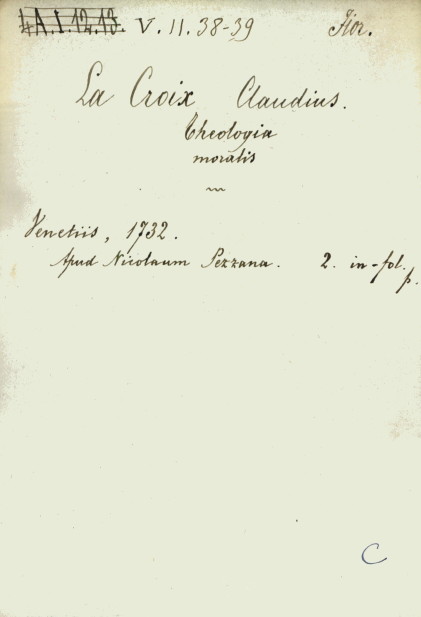 4A.I.12.13. V. 11. 38-39 Fior.
La Croix Claudius.
Theologia
moralis
Venetiis, 1732.
Apud Nicolaum Pezzana. 2. in-fol.
p.
C